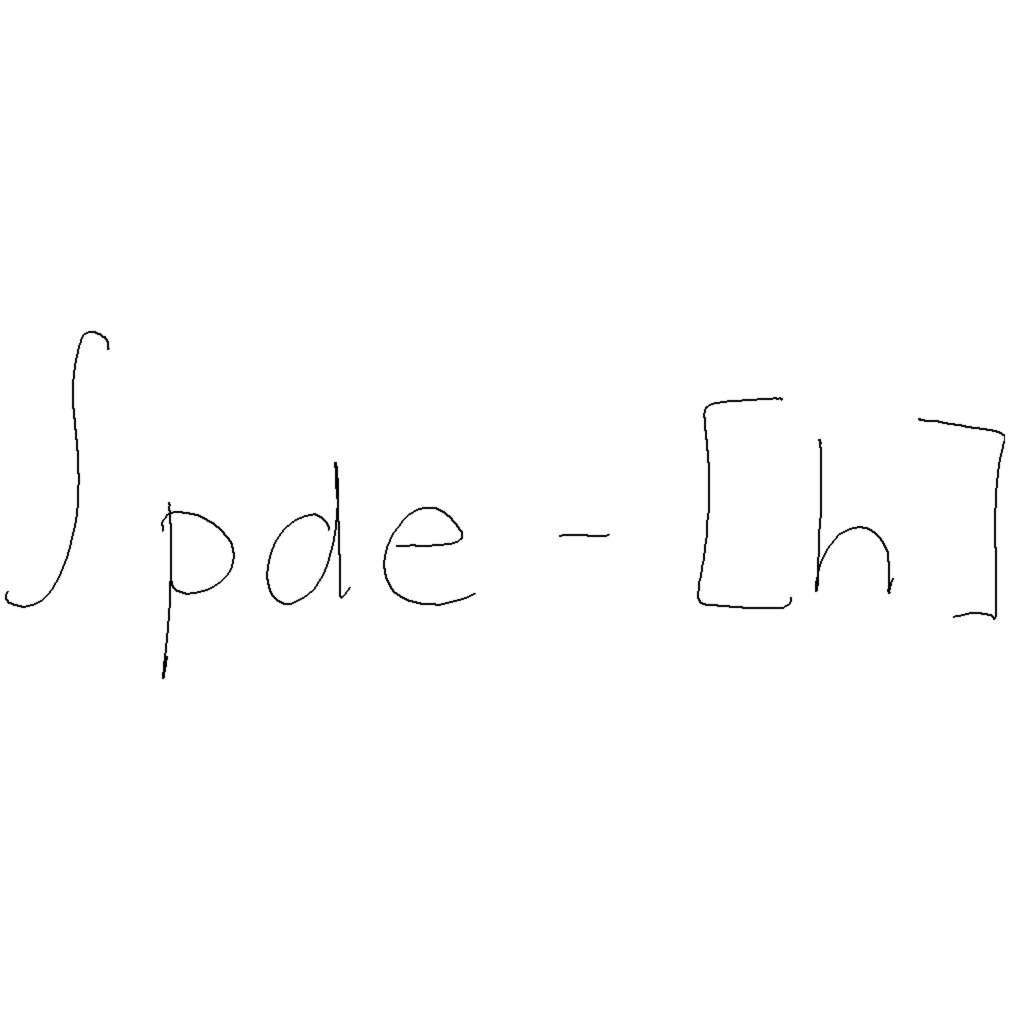 ∫pde - [h]